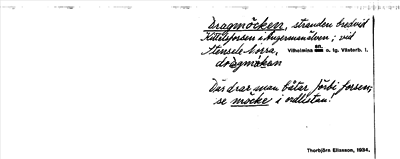 Dragmöcken, stranden bredvid
Kittelforsen i Ångermanälven; vid
Stensele norra, Vilhelmina sn. o. tg. Västerb. l.
dragmökan
Där drar man båtar förbi forsen,
se mocke i ordlistan!
Thorbjörn Eliasson, 1934.